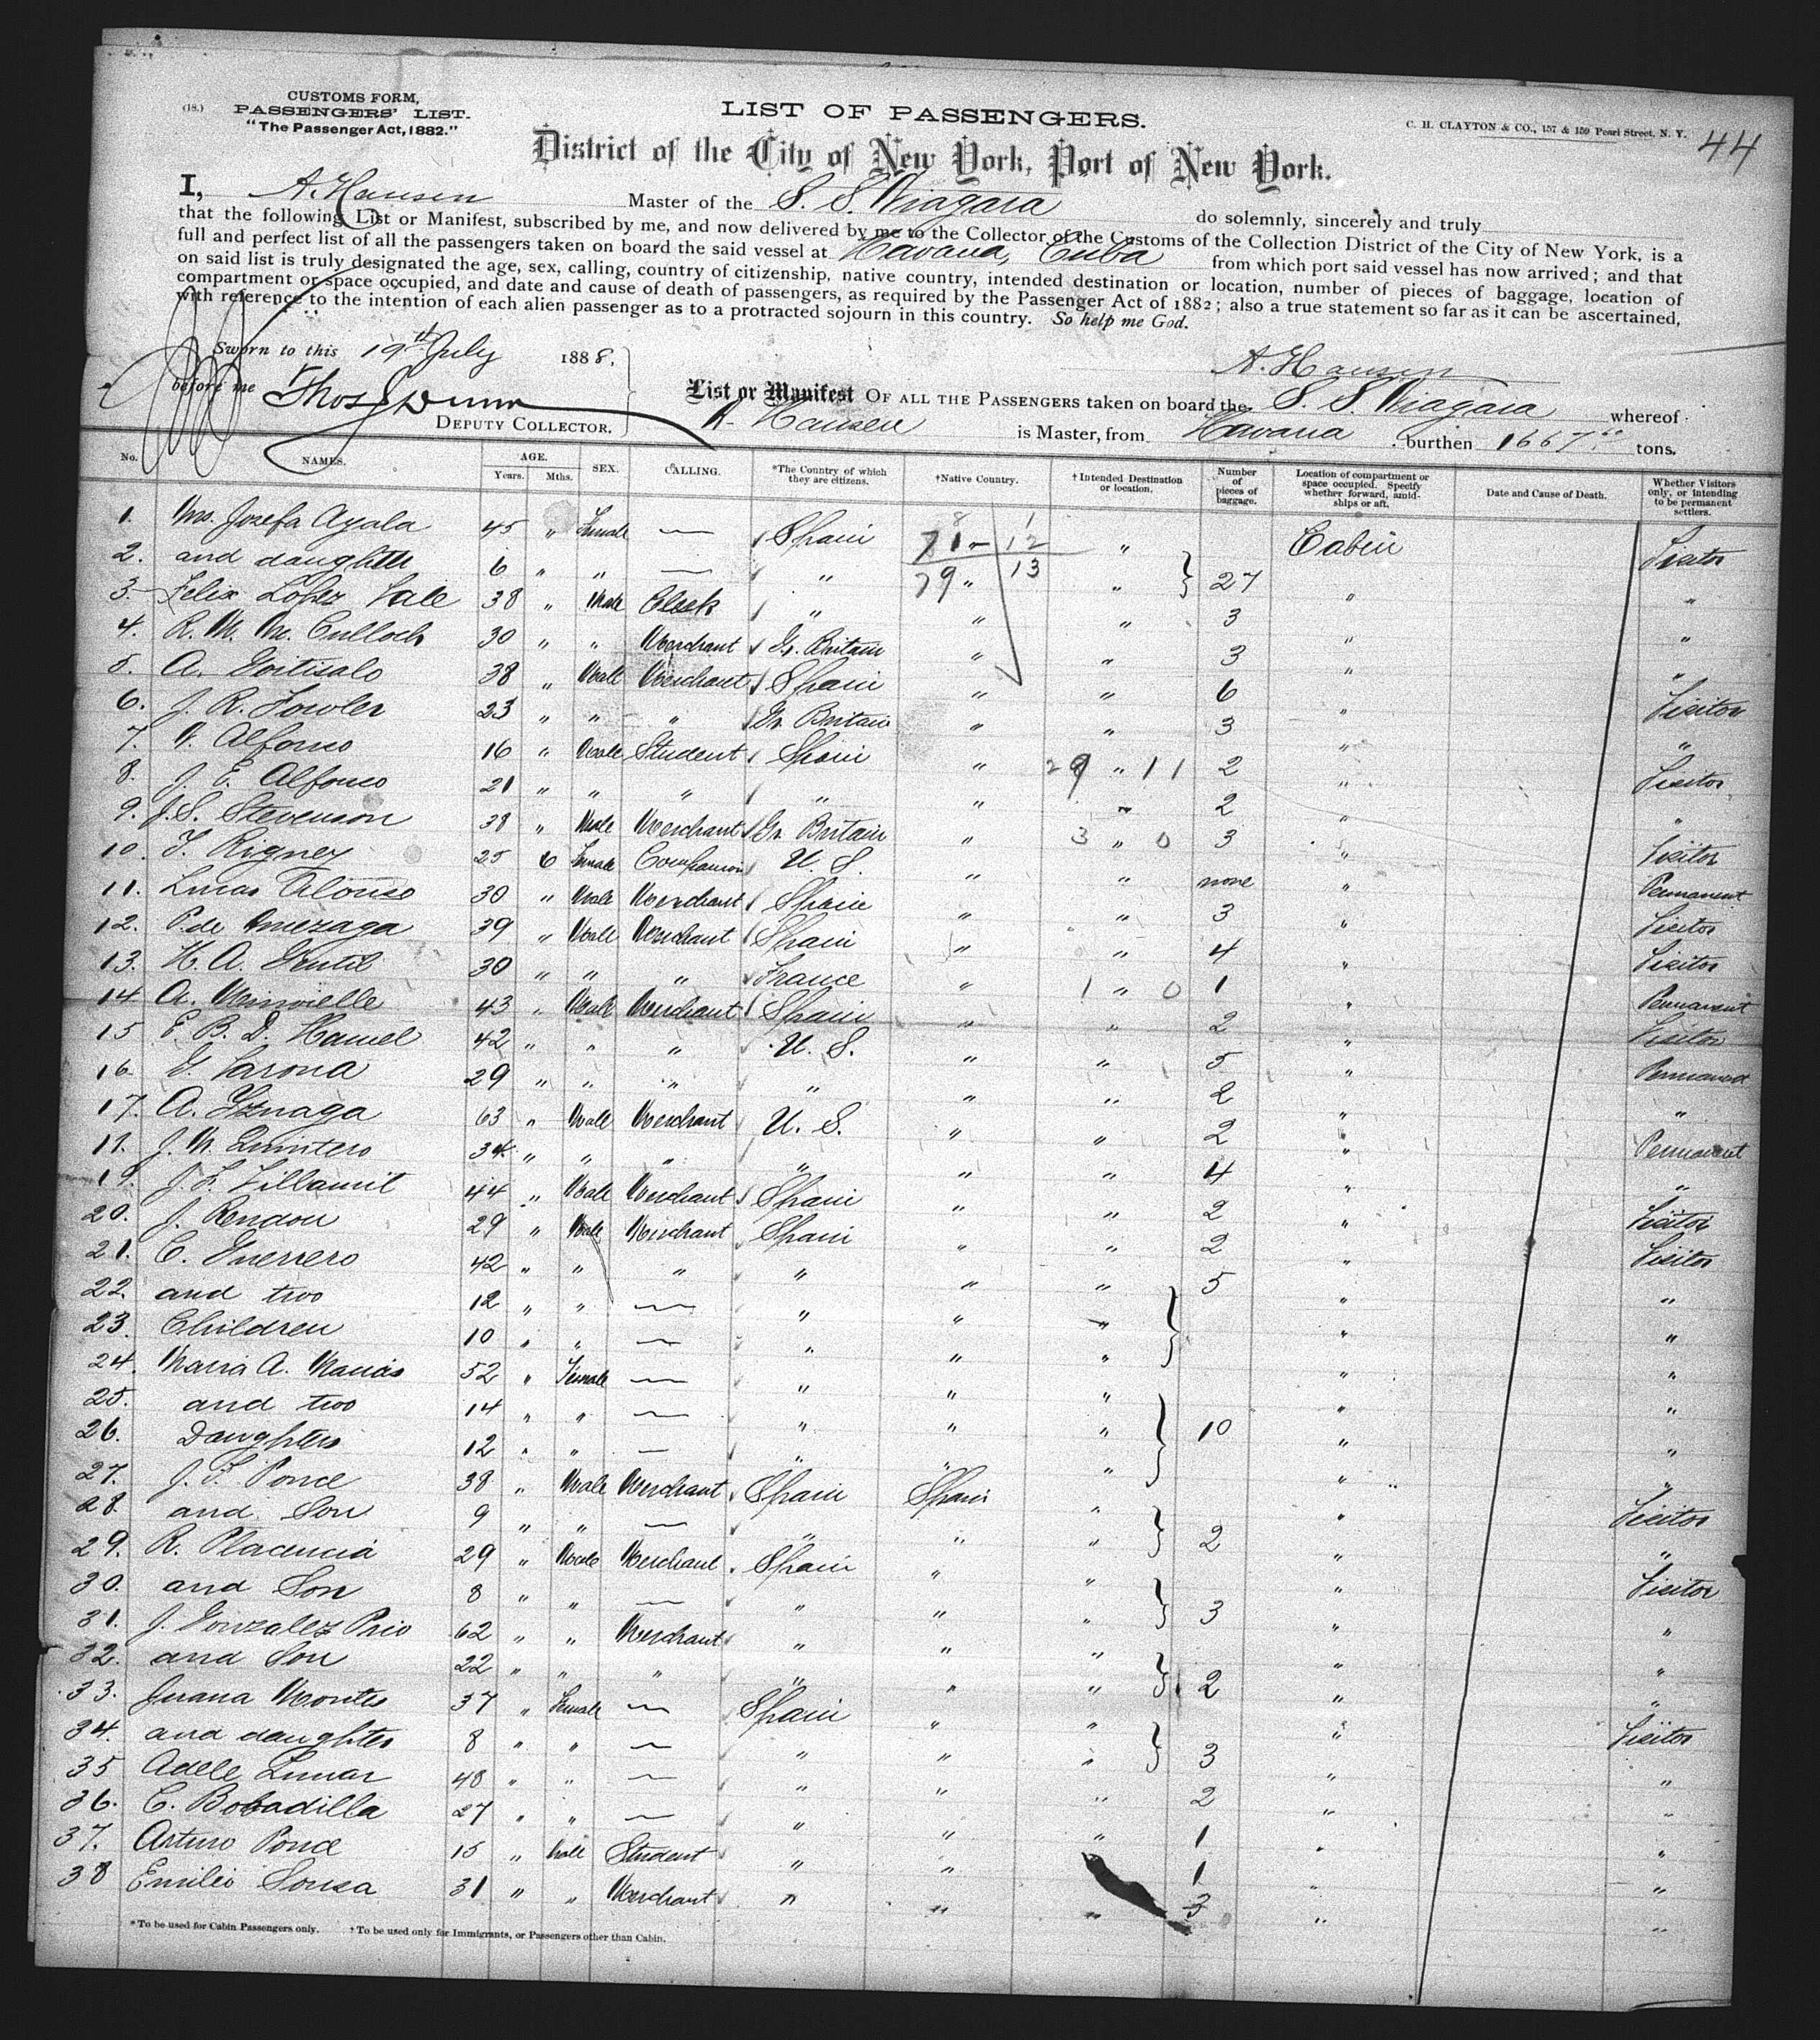 CUSTOMS FORM,
(18.) PASSENGERS' LIST.
"The Passenger Act, 1882."
LIST OF PASSENGERS.
C. H. CLAYTON & CO., 157 & 159 Pearl Street, N. Y.
44
District of the City of New York, Port of New York.
I, A. Hansen Master of the S. S. Niagara do solemnly, sincerely and truly
that the following List or Manifest, subscribed by me, and now delivered by me to the Collector of the Customs of the Collection District of the City of New York, is a
full and perfect list of all the passengers taken on board the said vessel at Havana, Cuba from which port said vessel has now arrived; and that
on said list is truly designated the age, sex, calling, country of citizenship, native country, intended destination or location, number of pieces of baggage, location of
compartment or space occupied, and date and cause of death of passengers, as required by the Passenger Act of 1882; also a true statement so far as it can be ascertained,
with reference to the intention of each alien passenger as to a protracted sojourn in this country. So help me God.
Sworn to this 19th July 1888.
A. Hansen
before me Thos J Dunn
DEPUTY COLLECTOR.
List or Manifest OF ALL THE PASSENGERS taken on board the S. S. Niagara whereof
A. Hansen is Master, from Havana burthen 1667 tons.
No. NAMES. AGE. Years. Mths. SEX. CALLING. *The Country of which they are citizens. †Native Country. †Intended Destination or location. Number of pieces of baggage. Location of compartment or space occupied. Specify whether forward, amidships or aft. Date and Cause of Death. Whether Visitors only, or intending to be permanent settlers.
1. Mrs. Josefa Ayala 45 " Female — Spain 71 - 12 " Cabin Visitor
2. and daughter 6 " " — " 79 " 13 " 27 " "
3. Felix Lopez Vale 38 " Male Clerk " " " 3 " "
4. R. M. Mc. Culloch 30 " " Merchant Gr. Britain " " 3 " "
5. A. Goitisolo 38 " Male Merchant Spain " " 6 " Visitor
6. J. R. Fowler 23 " " " Gr. Britain " " 3 " "
7. V. Alfonso 16 " Male Student Spain " 29 " 11 2 " Visitor
8. J. E. Alfonso 21 " " " " " " 2 " "
9. J. S. Stevenson 38 " Male Merchant Gr. Britain " 3 " 0 3 " Visitor
10. F. Rigney 25 6 Female Companion U. S. " " none " Permanent
11. Lucas Alonso 30 " Male Merchant Spain " " 3 " Visitor
12. P. de Amezaga 39 " Male Merchant Spain " " 4 " Visitor
13. H. A. Gentil 30 " " " France " 1 " 0 1 " Permanent
14. A. Minvielle 43 " Male Merchant Spain " " 2 " Visitor
15 E. B. D. Hamel 42 " " " U. S. " " 5 " Permanent
16. G. Varona 29 " " " " " " 2 " "
17. A. Yznaga 63 " Male Merchant U. S. " " 2 " Permanent
18. J. M. Quintero 34 " " " " " " 4 " "
19. J. F. Villamil 44 " Male Merchant Spain " " 2 " Visitor
20. J. Rendon 29 " Male Merchant Spain " " 2 " Visitor
21. C. Guerrero 42 " " " " " " 5 " "
22. and two 12 " " — " " " " "
23. Children 10 " " — " " " " "
24. Maria A. Macias 52 " Female — " " " " "
25. and two 14 " " — " " " 10 " "
26. Daughters 12 " " — " " " " "
27. J. F. Ponce 38 " Male Merchant Spain Spain " " Visitor
28. and Son 9 " " — " " " 2 " "
29. R. Placencia 29 " Male Merchant Spain " " " Visitor
30. and Son 8 " " — " " " 3 " "
31. J. Gonzalez Prio 62 " " Merchant " " " " "
32. and Son 22 " " " " " " 2 " "
33. Juana Montes 37 " Female — Spain " " " Visitor
34. and daughter 8 " " — " " " 3 " "
35 Adele Lunar 48 " " — " " " 2 " "
36. C. Bobadilla 27 " " — " " " 1 " "
37. Arturo Ponce 15 " Male Student " " 1 " "
38 Emilio Sousa 31 " " Merchant " " " 3 " "
*To be used for Cabin Passengers only. †To be used only for Immigrants, or Passengers other than Cabin.